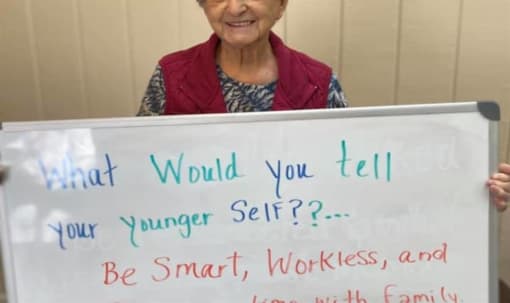 What Would you tell
your younger Self??...
Be Smart, Workless, and
time with family